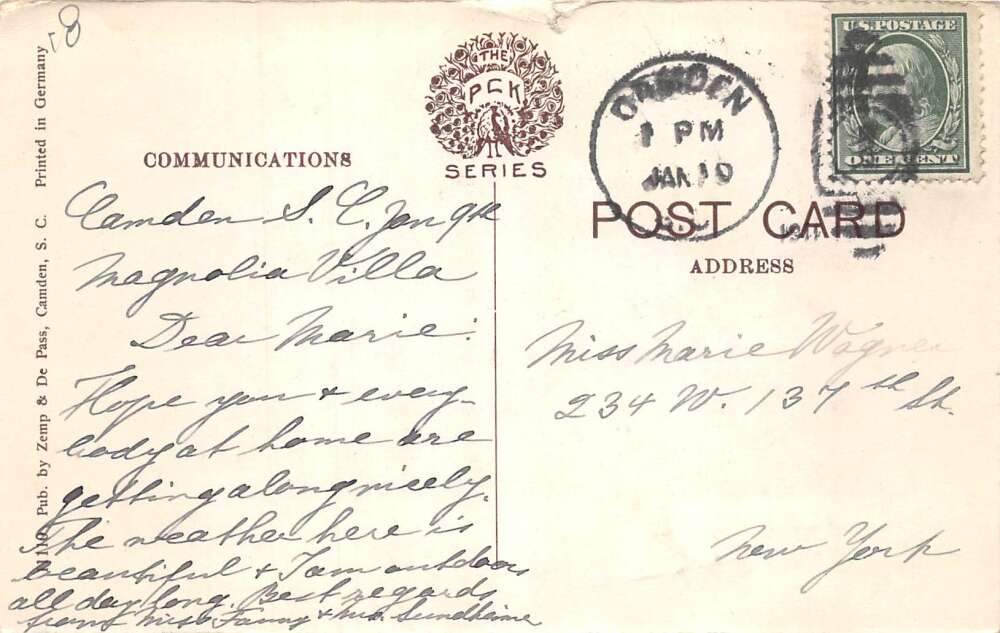 18
N119 Pub. by Zemp & De Pass, Camden, S. C. Printed in Germany
COMMUNICATIONS
THE
PCK
SERIES
CAMDEN
1 PM
JAN 10
U.S. POSTAGE
ONE CENT
POST CARD
ADDRESS
Camden S. C. Jan 9th
Magnolia Villa
Dear Marie:
Hope you & every-
body at home are
getting along nicely.
The weather here is
beautiful & I am outdoors
all day long. Best regards
from Miss Fanny & Mrs. Sundheime
Miss Marie Wagner
234 W. 137th St.
New York